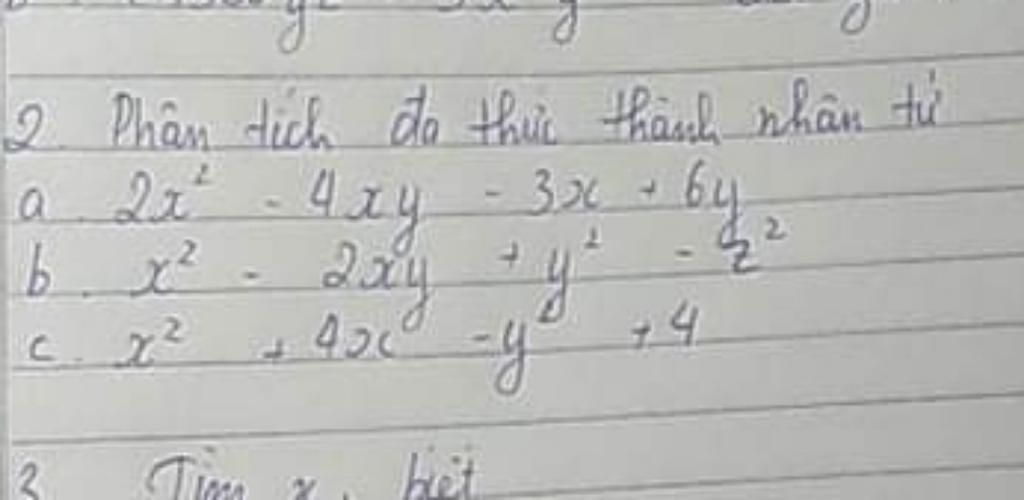 2. Phân tích đa thức thành nhân tử
a. 2x² - 4xy - 3x + 6y
b. x² - 2xy + y² - z²
c. x² + 4x - y² + 4
3 Tìm x, biết